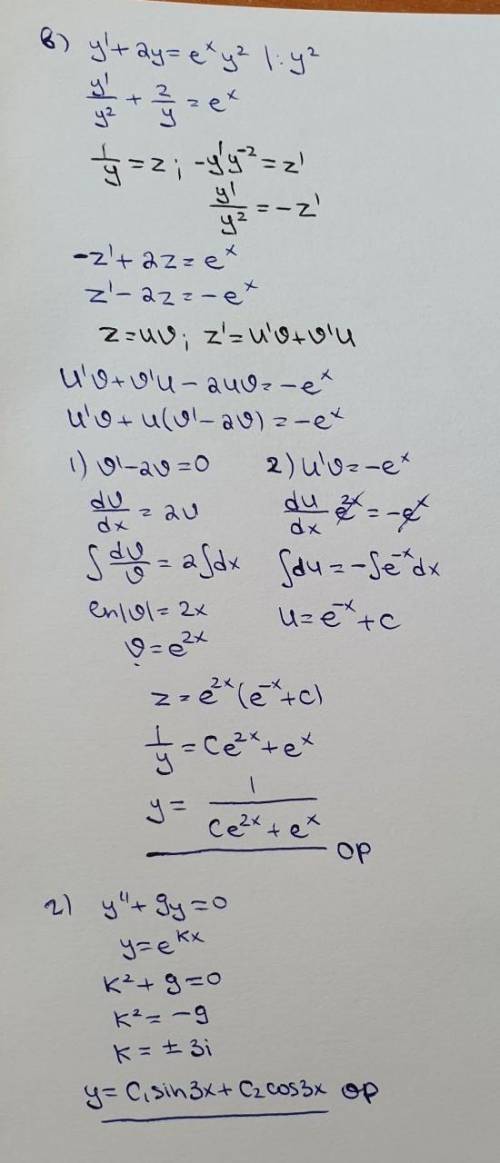 в) y' + 2y = eˣ y² | : y²
y'/y² + 2/y = eˣ
1/y = z ; -y'y⁻² = z'
y'/y² = -z'
-z' + 2z = eˣ
z' - 2z = -eˣ
z = uv ; z' = u'v + v'u
u'v + v'u - 2uv = -eˣ
u'v + u(v' - 2v) = -eˣ
1) v' - 2v = 0 2) u'v = -eˣ
dv/dx = 2v du/dx e²ˣ = -eˣ
∫ dv/v = 2∫dx ∫du = -∫e⁻ˣdx
ln|v| = 2x u = e⁻ˣ + c
v = e²ˣ
z = e²ˣ(e⁻ˣ + c)
1/y = Ce²ˣ + eˣ
y = 1/(Ce²ˣ + eˣ) ОР
г) y'' + 9y = 0
y = eᵏˣ
k² + 9 = 0
k² = -9
k = ± 3i
y = C₁sin3x + C₂cos3x ОР